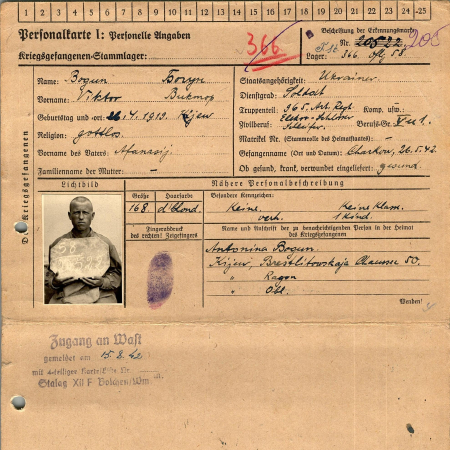 1 2 3 4 5 6 7 8 9 10 11 12 13 14 15 16 17 18 19 20 21 22 23 24 25
Personalkarte I: Personelle Angaben
Kriegsgefangenen-Stammlager:
366
Beschriftung der Erkennungsmarke
Nr. 20522 205
Lager: 366 Ofl 58
Des Kriegsgefangenen
Name: Bogun Богун
Vorname: Viktor Виктор
Geburtstag und -ort: 4.1919. Kijew
Religion: gottlos.
Vorname des Vaters: Afanasij.
Familienname der Mutter: –
Staatsangehörigkeit: Ukrainer
Dienstgrad: Soldat
Truppenteil: 965. Art. Regt. Komp. usw.:
Zivilberuf: Elektro-Schlosser Schleifer. Berufs-Gr.: V 1.
Matrikel Nr. (Stammrolle des Heimatstaates): –
Gefangennahme (Ort und Datum): Charkow, 26.5.42.
Ob gesund, krank, verwundet eingeliefert: gesund.
Lichtbild
Nähere Personalbeschreibung
Größe
Haarfarbe
Besondere Kennzeichen:
168.
d'blond.
Keine. Keine Klam.
verh. 1 Kind.
Fingerabdruck
des rechten! Zeigefingers
Name und Anschrift der zu benachrichtigenden Person in der Heimat
des Kriegsgefangenen
Antonina Bogun.
Kijew, Brestlitowskaja Chaussee 50.
" Rayon
" Obl.
Wenden!
Zugang an Wast
gemeldet am 15.8.42
mit 4-teiliger Karteikarte Nr.
Stalag XII F Bolchen/Wm